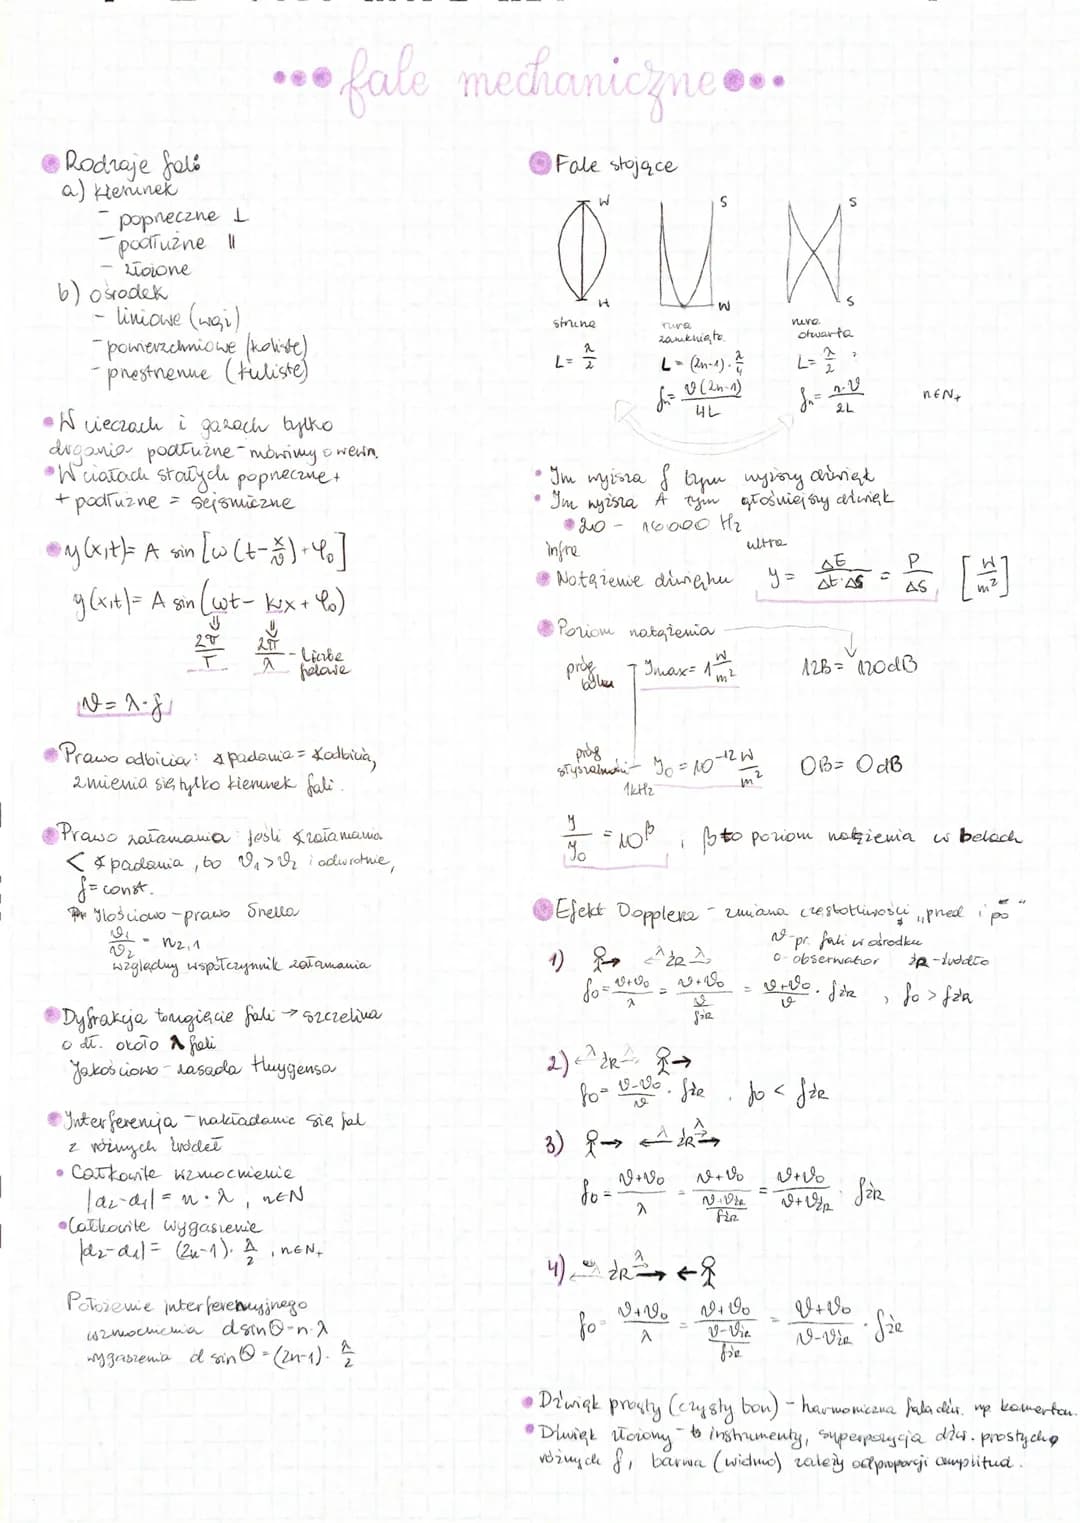 fale mechaniczne
Rodzaje fali
a) kierunek
- poprzeczne ⊥
- podłużne ||
- złożone
b) ośrodek
- liniowe (wąż)
- powierzchniowe (koliste)
- przestrzenne (kuliste)
W cieczach i gazach tylko
drgania podłużne - mówimy o wewn.
W ciałach stałych poprzeczne +
+ podłużne = sejsmiczne
y(x,t) = A sin [ω(t-x/v)+φ₀]
y(x,t) = A sin (ωt - kx + φ₀)
⇓ ⇓
2π/T 2π/λ - liczba falowa
v = λ·f
Prawo odbicia: ∢ padania = ∢ odbicia,
zmienia się tylko kierunek fali.
Prawo załamania jeśli ∢ załamania
< ∢ padania, to v₁ > v₂ i odwrotnie,
f = const.
Ilościowo - prawo Snella
v₁/v₂ = n₂,₁
względny współczynnik załamania
Dyfrakcja ugięcie fali → szczelina
o dł. około λ fali
Jakościowo - zasada Huygensa
Interferencja - nakładanie się fal
z różnych źródeł
Całkowite wzmocnienie
|d₂-d₁| = n·λ, n∈N
Całkowite wygaszenie
|d₂-d₁| = (2n-1)·λ/2, n∈N₊
Położenie interferencyjnego
wzmocnienia d sinΘ = n·λ
wygaszenia d sinΘ = (2n-1)·λ/2
Fale stojące
W S S
W W S
struna rura zamknięta rura otwarta
L = λ/2 L = (2n-1)·λ/4 L = λ/2 ,
fₙ = v(2n-1)/4L fₙ = n·v/2L n∈N₊
Im wyższa f tym wyższy dźwięk
Im wyższa A tym głośniejszy dźwięk
20 - 16000 Hz
infra ultra
Natężenie dźwięku y = ΔE/Δt·ΔS = P/ΔS [W/m²]
Poziom natężenia
próg bólu Jmax = 1 W/m² 12B = 120dB
próg słyszalności J₀ = 10⁻¹² W/m² 0B = 0dB
1kHz
J/J₀ = 10^β ; β to poziom natężenia w belach
Efekt Dopplera - zmiana częstotliwości „przed i po"
v - pr. fali w ośrodku
o - obserwator źR - źródło
1) λ źR λ
f₀ = v+v₀/λ = v+v₀/(v/fźR) = v+v₀/v · fźR , f₀ > fźR
2) λ źR λ
f₀ = v-v₀/v · fźR , f₀ < fźR
3) λ źR λ
f₀ = v+v₀/λ = v+v₀/(v+vźR/fźR) = v+v₀/v+vźR · fźR
4) źR λ
f₀ = v+v₀/λ = v+v₀/(v-vźR/fźR) = v+v₀/v-vźR · fźR
Dźwięk prosty (czysty ton) - harmoniczna fala dźw. np. kamerton.
Dźwięk złożony - to instrumenty, superpozycja dźw. prostych o
różnych f, barwa (widmo) zależy od proporcji amplitud.